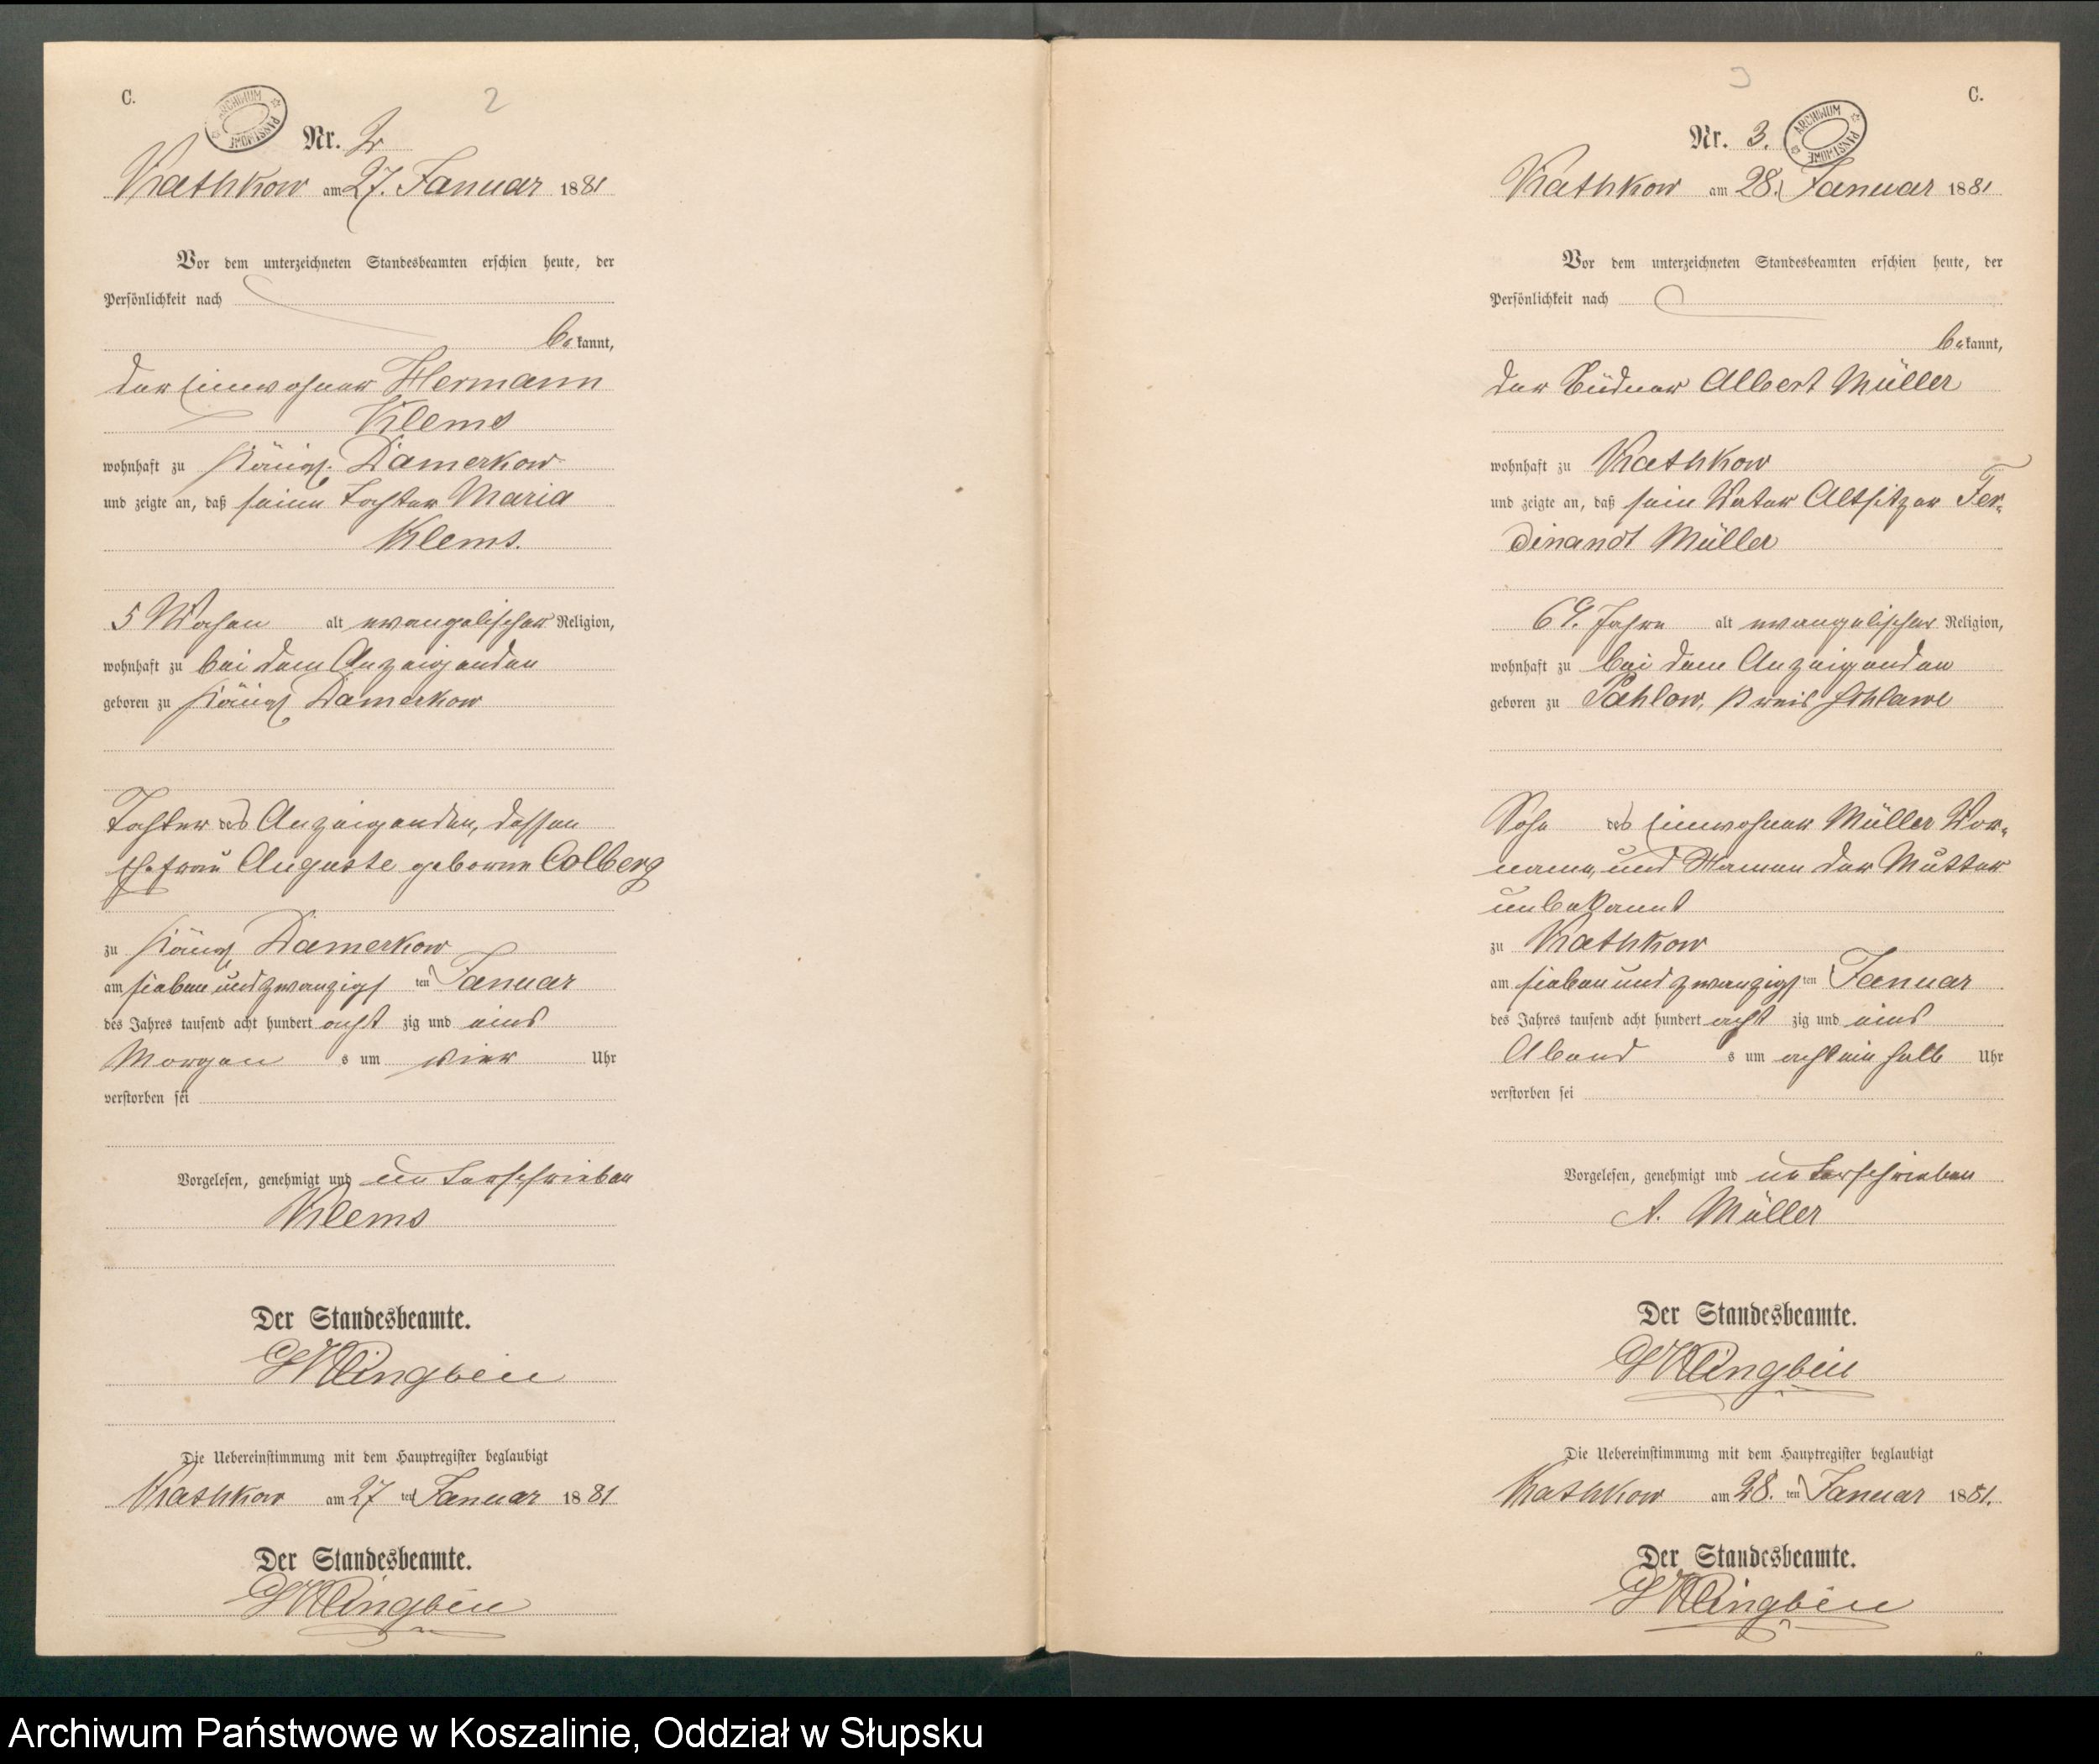 C.
ARCHIWUM PAŃSTWOWE
2
Nr. 2
Kathkow am 27. Januar 1881
Vor dem unterzeichneten Standesbeamten erschien heute, der
Persönlichkeit nach
bekannt,
der Einwohner Hermann
Klems
wohnhaft zu Königl. Damerkow
und zeigte an, daß seine Tochter Maria
Klems.
5 Wochen alt evangelischer Religion,
wohnhaft zu bei dem Anzeigenden
geboren zu Königl Damerkow
Tochter des Anzeigenden, dessen
Ehefrau Auguste geborne Colberg
zu Königl Damerkow
am sieben und zwanzigsten Januar
des Jahres tausend acht hundert acht zig und eins
Morgens um vier Uhr
verstorben sei
Vorgelesen, genehmigt und unterschrieben
Klems
Der Standesbeamte.
Klingbeil
Die Uebereinstimmung mit dem Hauptregister beglaubigt
Kathkow am 27 ten Januar 1881
Der Standesbeamte.
Klingbeil
C.
3
Nr. 3.
ARCHIWUM PAŃSTWOWE
Kathkow am 28. Januar 1881
Vor dem unterzeichneten Standesbeamten erschien heute, der
Persönlichkeit nach
bekannt,
der Büdner Albert Müller
wohnhaft zu Kathkow
und zeigte an, daß sein Vater Altsitzer Fer-
dinandt Müller
69. Jahre alt evangelischer Religion,
wohnhaft zu bei dem Anzeigenden
geboren zu Pahlow, Kreis Schlawe
Sohn des Einwohner Müller Vor-
name, und Namen der Mutter
unbekannt
zu Kathkow
am sieben und zwanzigsten Januar
des Jahres tausend acht hundert acht zig und eins
Abends um acht ein halb Uhr
verstorben sei
Vorgelesen, genehmigt und unterschrieben
A. Müller
Der Standesbeamte.
Klingbeil
Die Uebereinstimmung mit dem Hauptregister beglaubigt
Kathkow am 28. ten Januar 1881.
Der Standesbeamte.
Klingbeil
Archiwum Państwowe w Koszalinie, Oddział w Słupsku